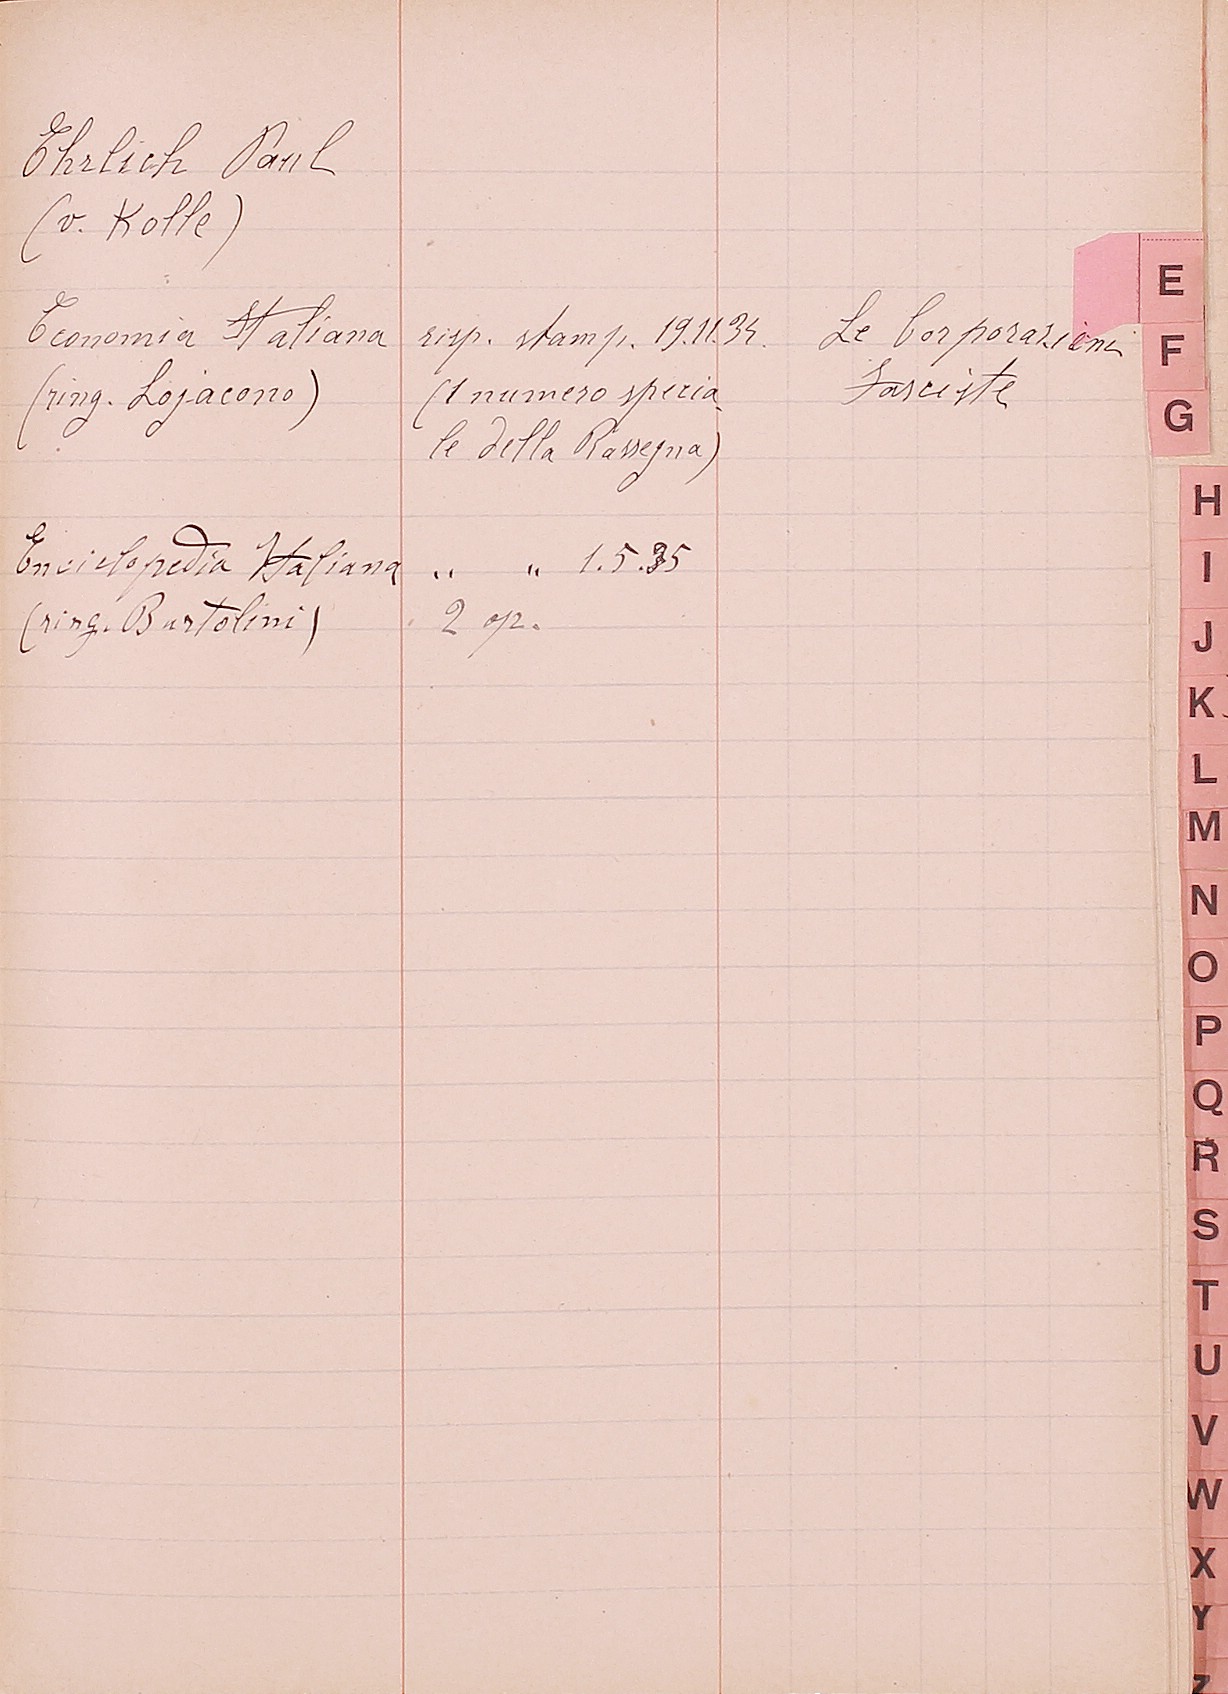 Ehrlich Paul
(v. Kolle)
Economia Italiana risp. stamp. 19.11.34. Le Corporazioni
(ring. Lojacono) (1 numero specia- Fasciste
le della Rassegna)
Enciclopedia Italiana " " 1.5.35
(ring. Bartolini) 2 op.
E
F
G
H
I
J
K
L
M
N
O
P
Q
R
S
T
U
V
W
X
Y
Z